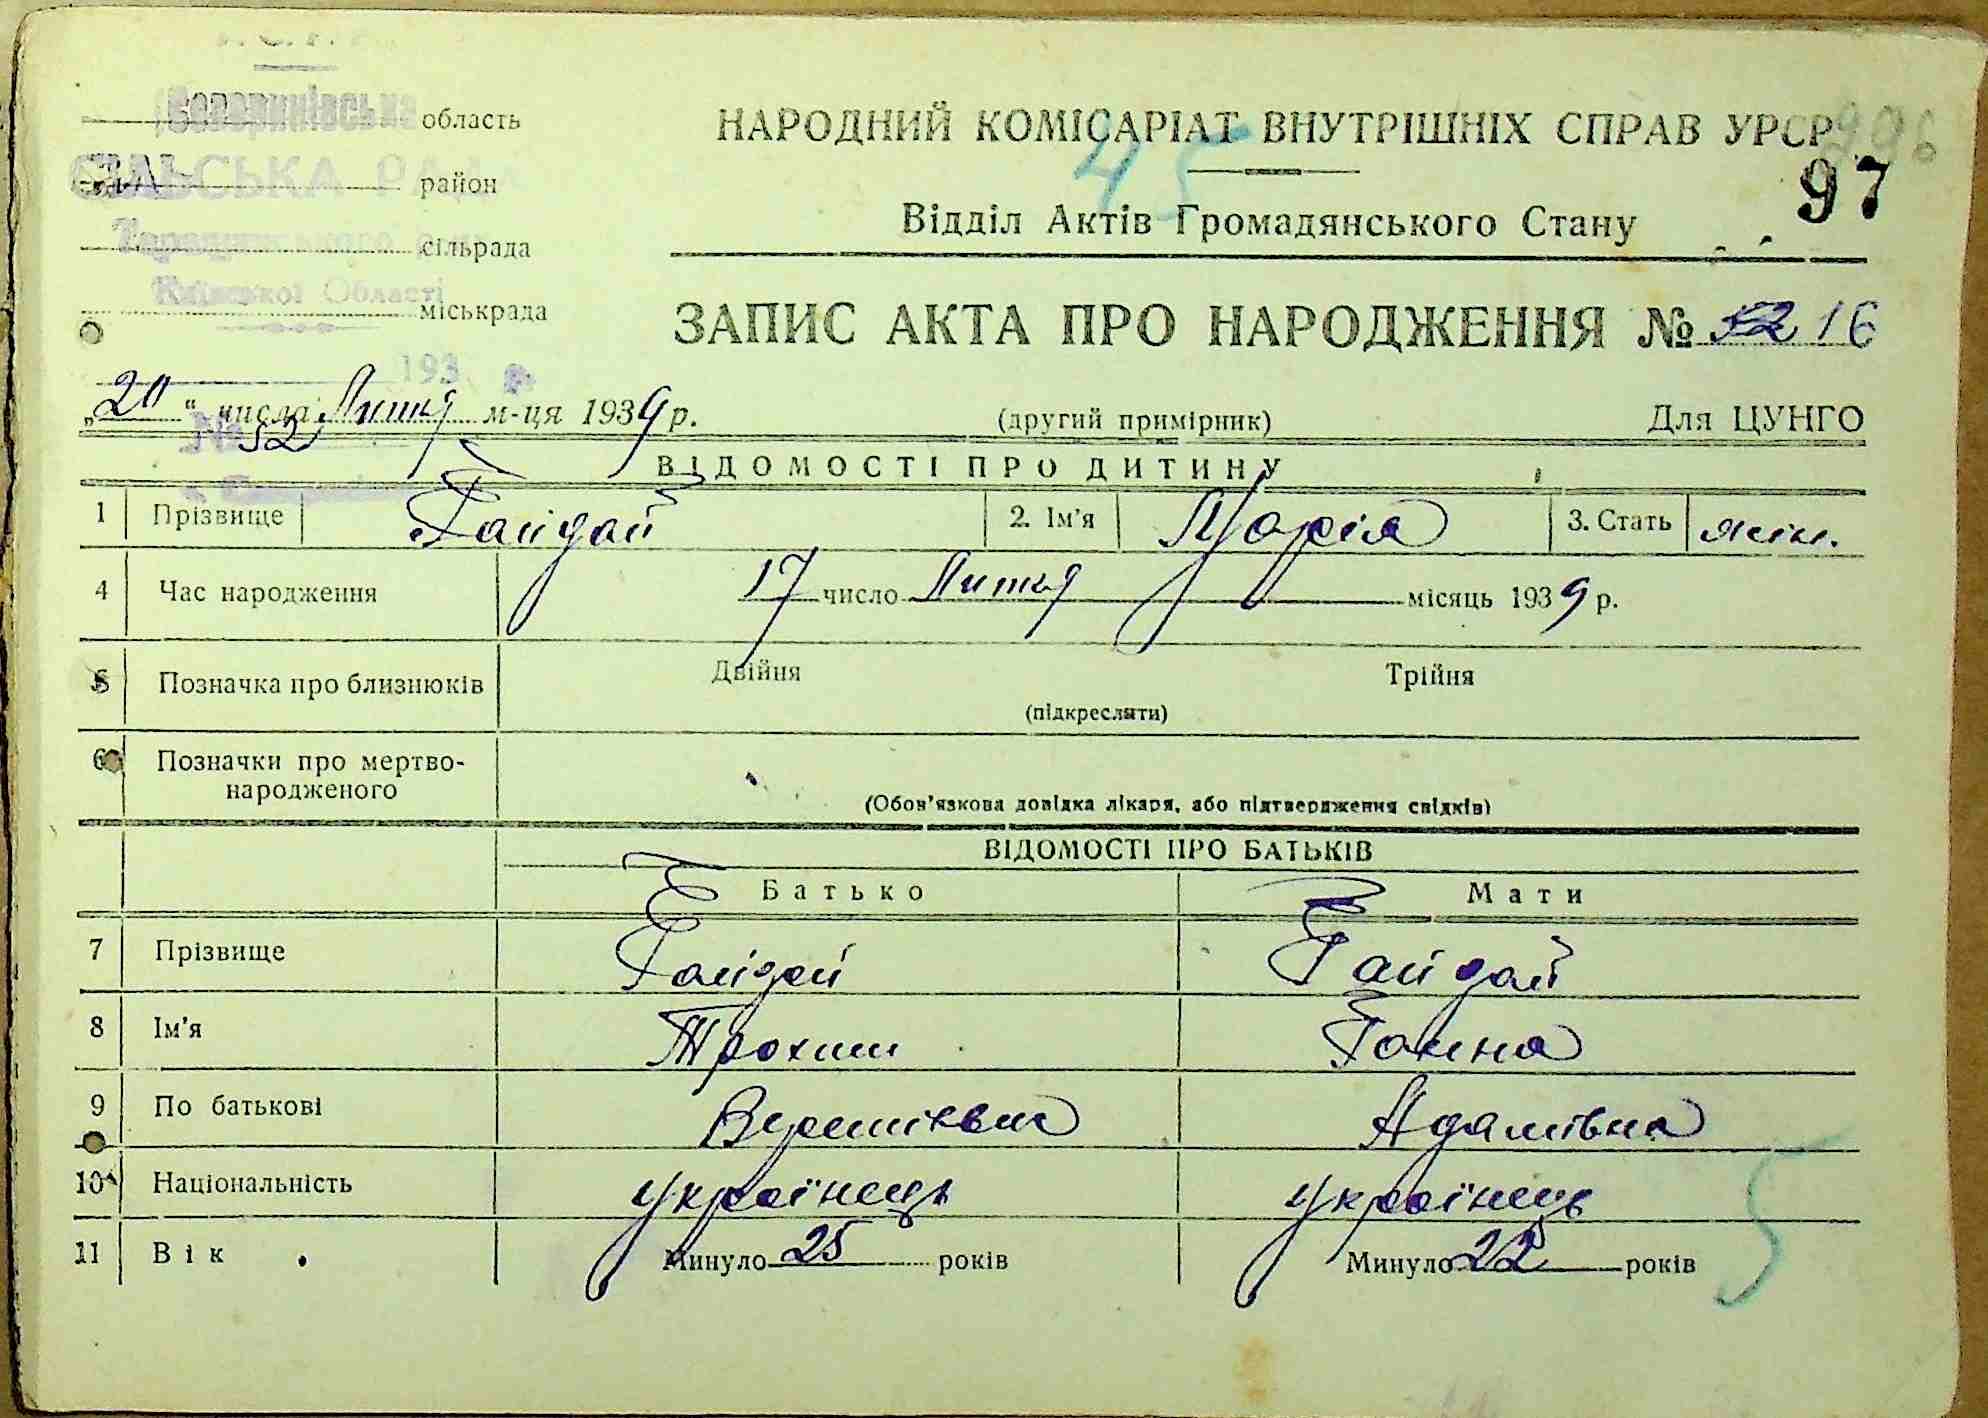 область
НАРОДНИЙ КОМІСАРІАТ ВНУТРІШНІХ СПРАВ УРСР
45
СІЛЬСЬКА РАДА
район
97
Відділ Актів Громадянського Стану
сільрада
Київської Області
міськрада
ЗАПИС АКТА ПРО НАРОДЖЕННЯ № 52 16
193 р.
„20“ числа Лютня м-ця 1939 р.
(другий примірник)
Для ЦУНГО
№ 52
ВІДОМОСТІ ПРО ДИТИНУ
1 Прізвище Гайдай 2. Ім'я Марія 3. Стать жін.
4 Час народження 17 число Лютня місяць 1939 р.
5 Позначка про близнюків Двійня Трійня
(підкреслити)
6 Позначки про мертво-
народженого
(Обов'язкова довідка лікаря, або підтвердження свідків)
ВІДОМОСТІ ПРО БАТЬКІВ
Батько Мати
7 Прізвище Гайдай Гайдай
8 Ім'я Трохим Ганна
9 По батькові Адамівна
10 Національність українець українець
11 Вік Минуло 25 років Минуло 22 років
5